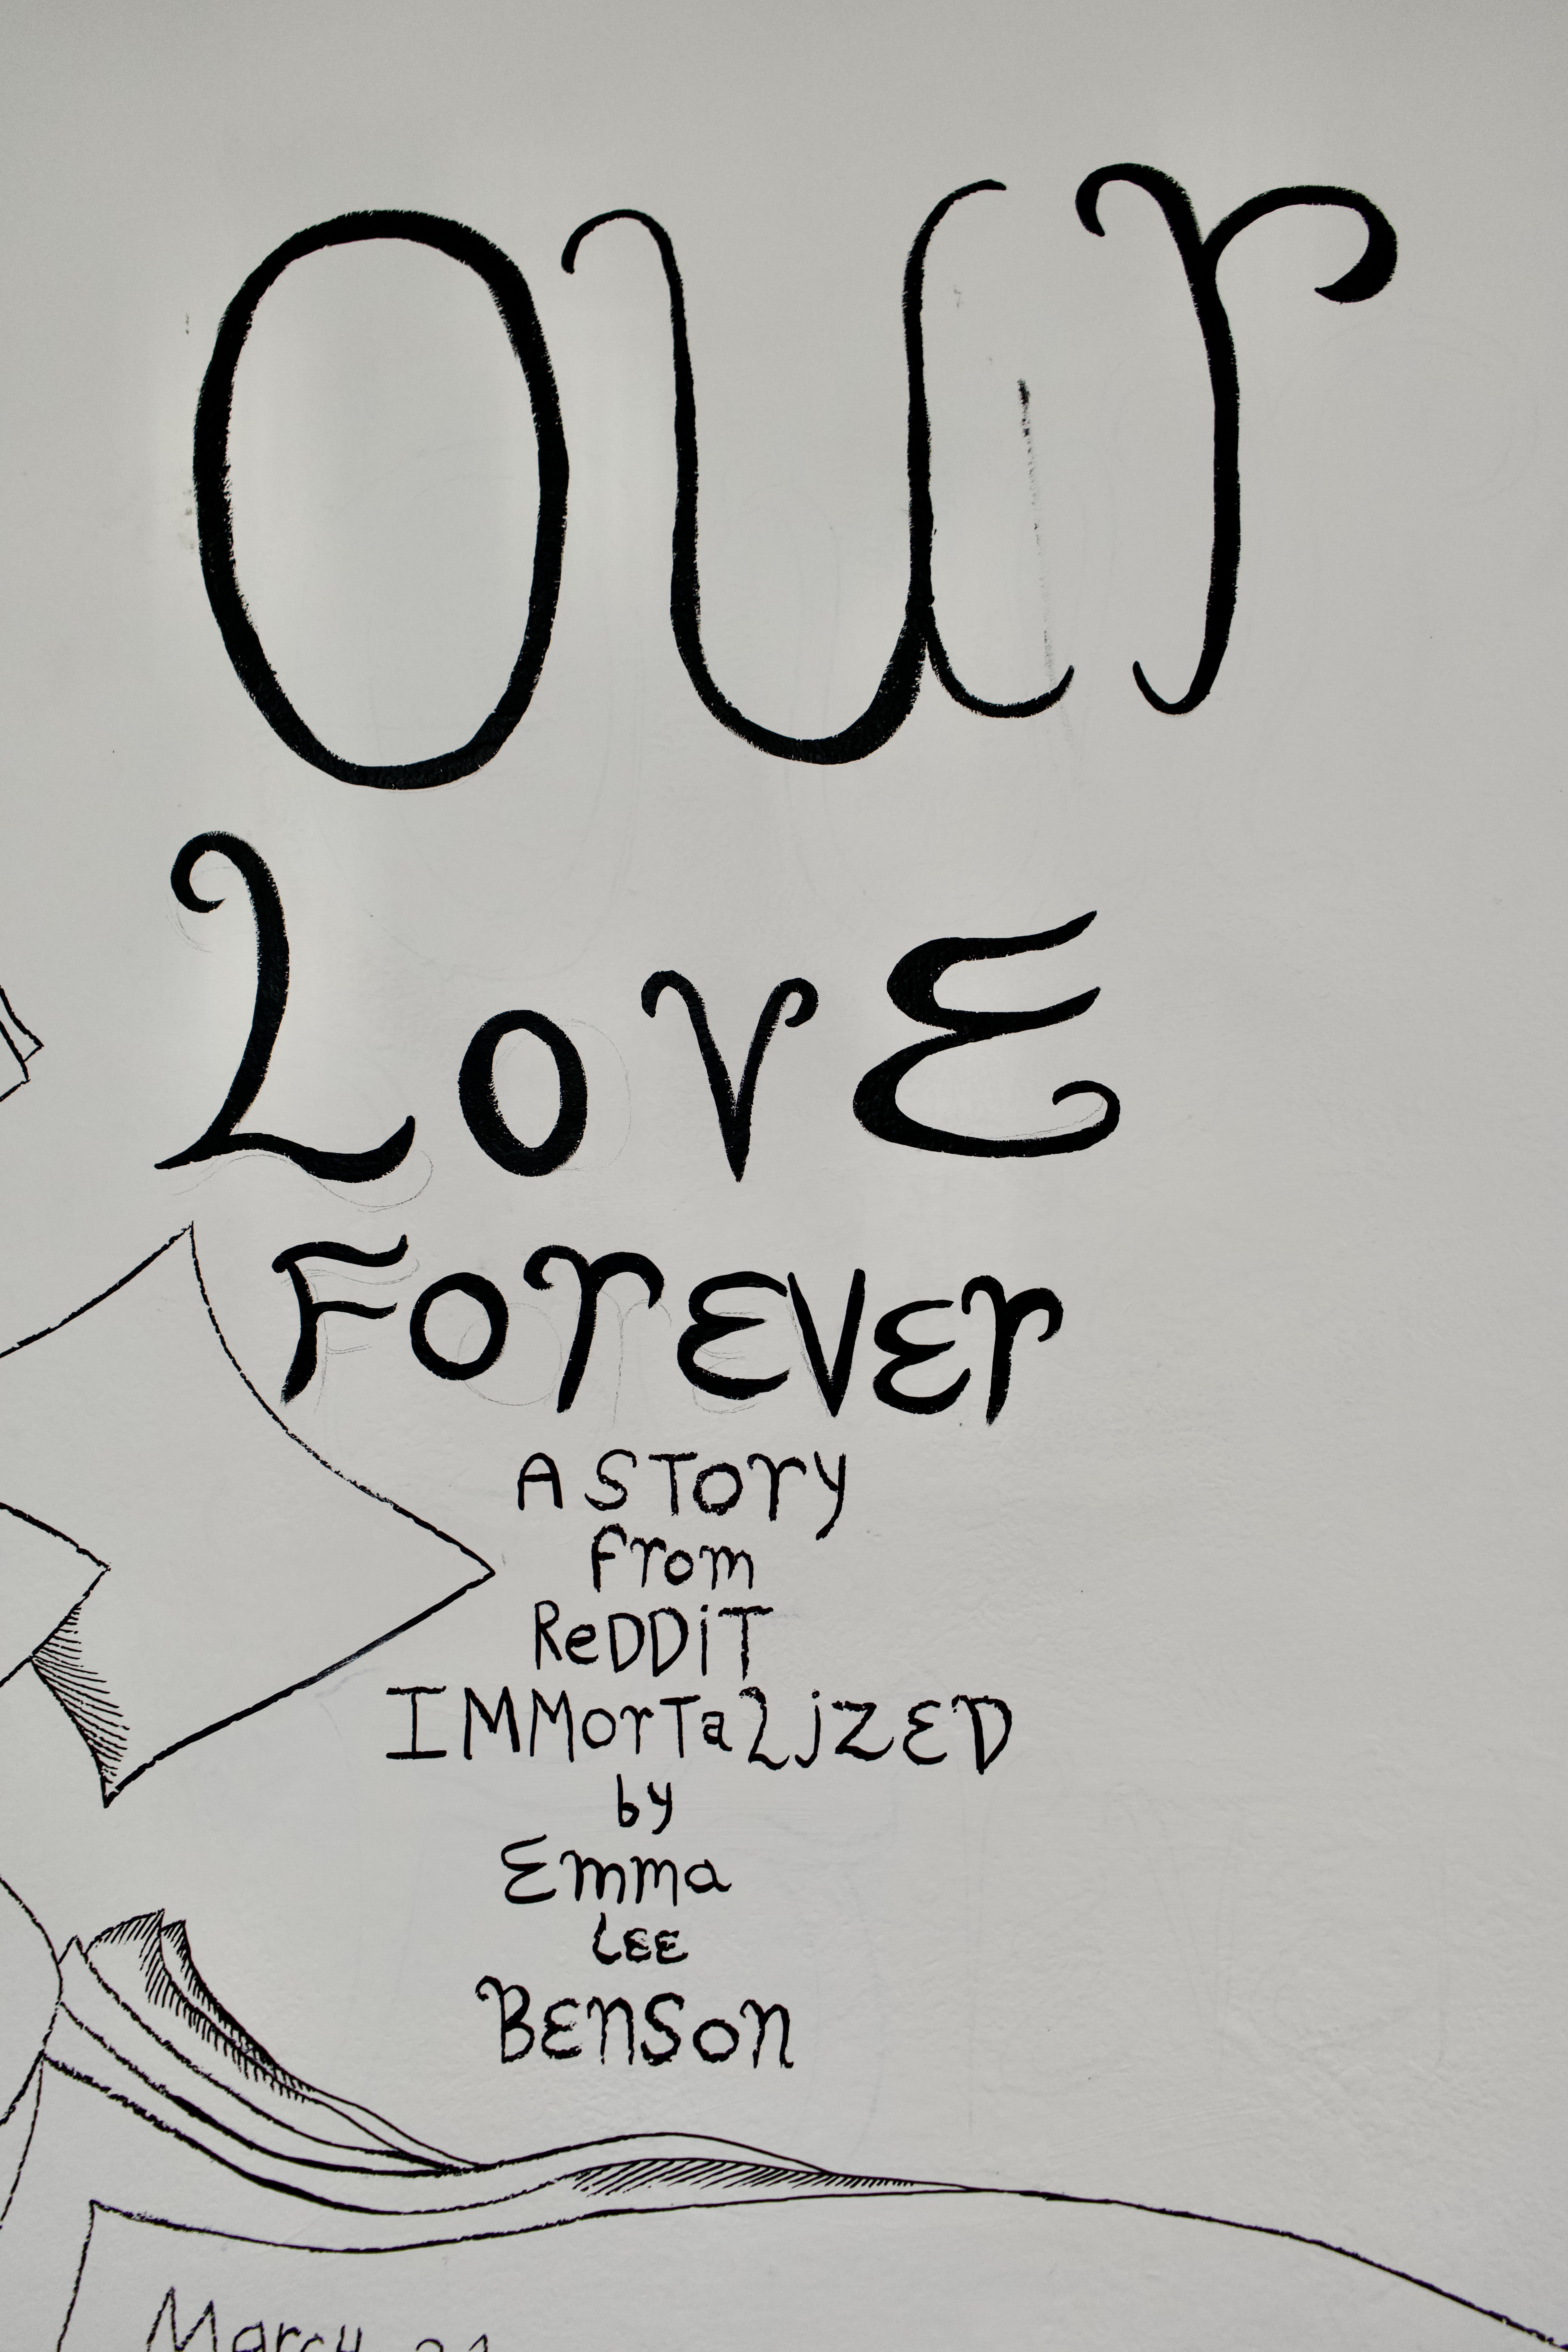 our
LovE
ForEvEr
A STory
from
ReDDiT
IMMorTaLiZED
by
Emma
LEE
BEnSon
March